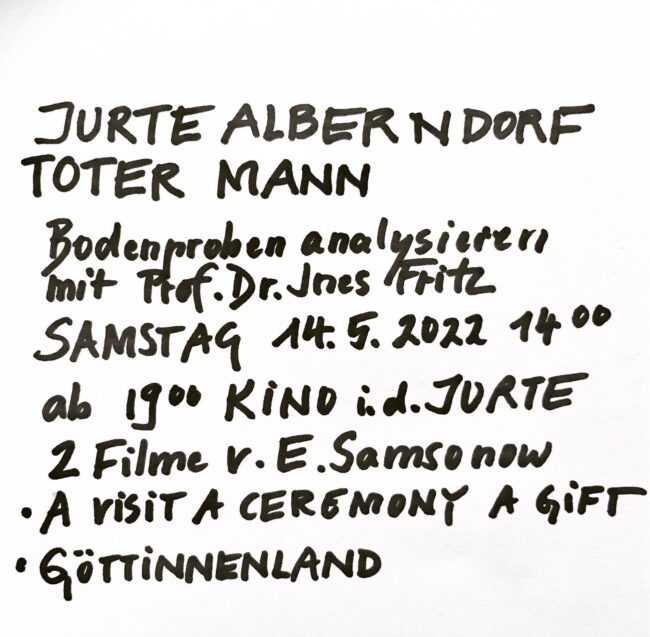 JURTE ALBERNDORF
TOTER MANN
Bodenproben analysieren
mit Prof. Dr. Ines Fritz
SAMSTAG 14. 5. 2022 14 00
ab 19 00 KINO i.d. JURTE
2 Filme v. E. Samsonow
• A VISIT A CEREMONY A GIFT
• GÖTTINNENLAND